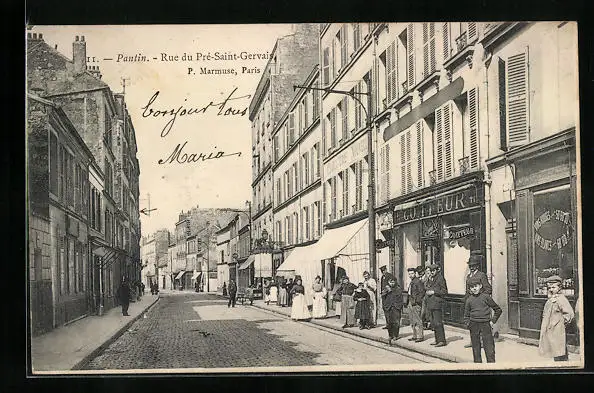 11. — Pantin. - Rue du Pré-Saint-Gervais
P. Marmuse, Paris
bonjour a tous
Maria
COIFFEUR